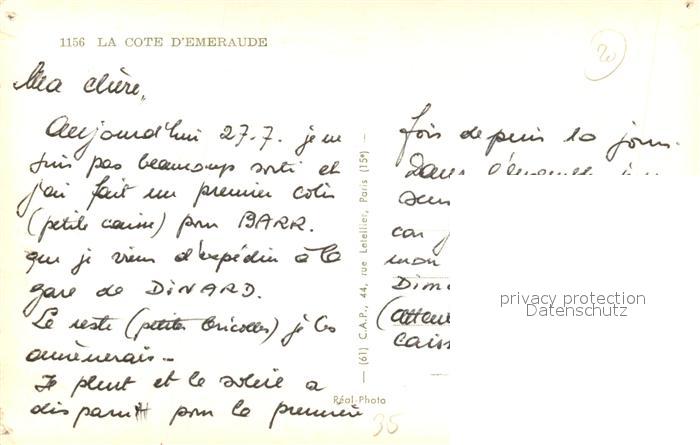 1156 LA COTE D'EMERAUDE
20
Ma chère,
Aujourd'hui 27.7. je ne
suis pas beaucoup sorti et
j'ai fait un premier colis
(petite caisse) pour BARR.
que je viens d'expédier à la
gare de DINARD.
Le reste (petites bricoles) je les
amènerais -
Il pleut et le soleil a
disparut pour la première
(61) C.A.P., 44, rue Letellier, Paris (15e)
Réal-Photo
fois depuis 10 jours.
Dans l'ensemble
car
mon
(
caiss
privacy protection
Datenschutz
35